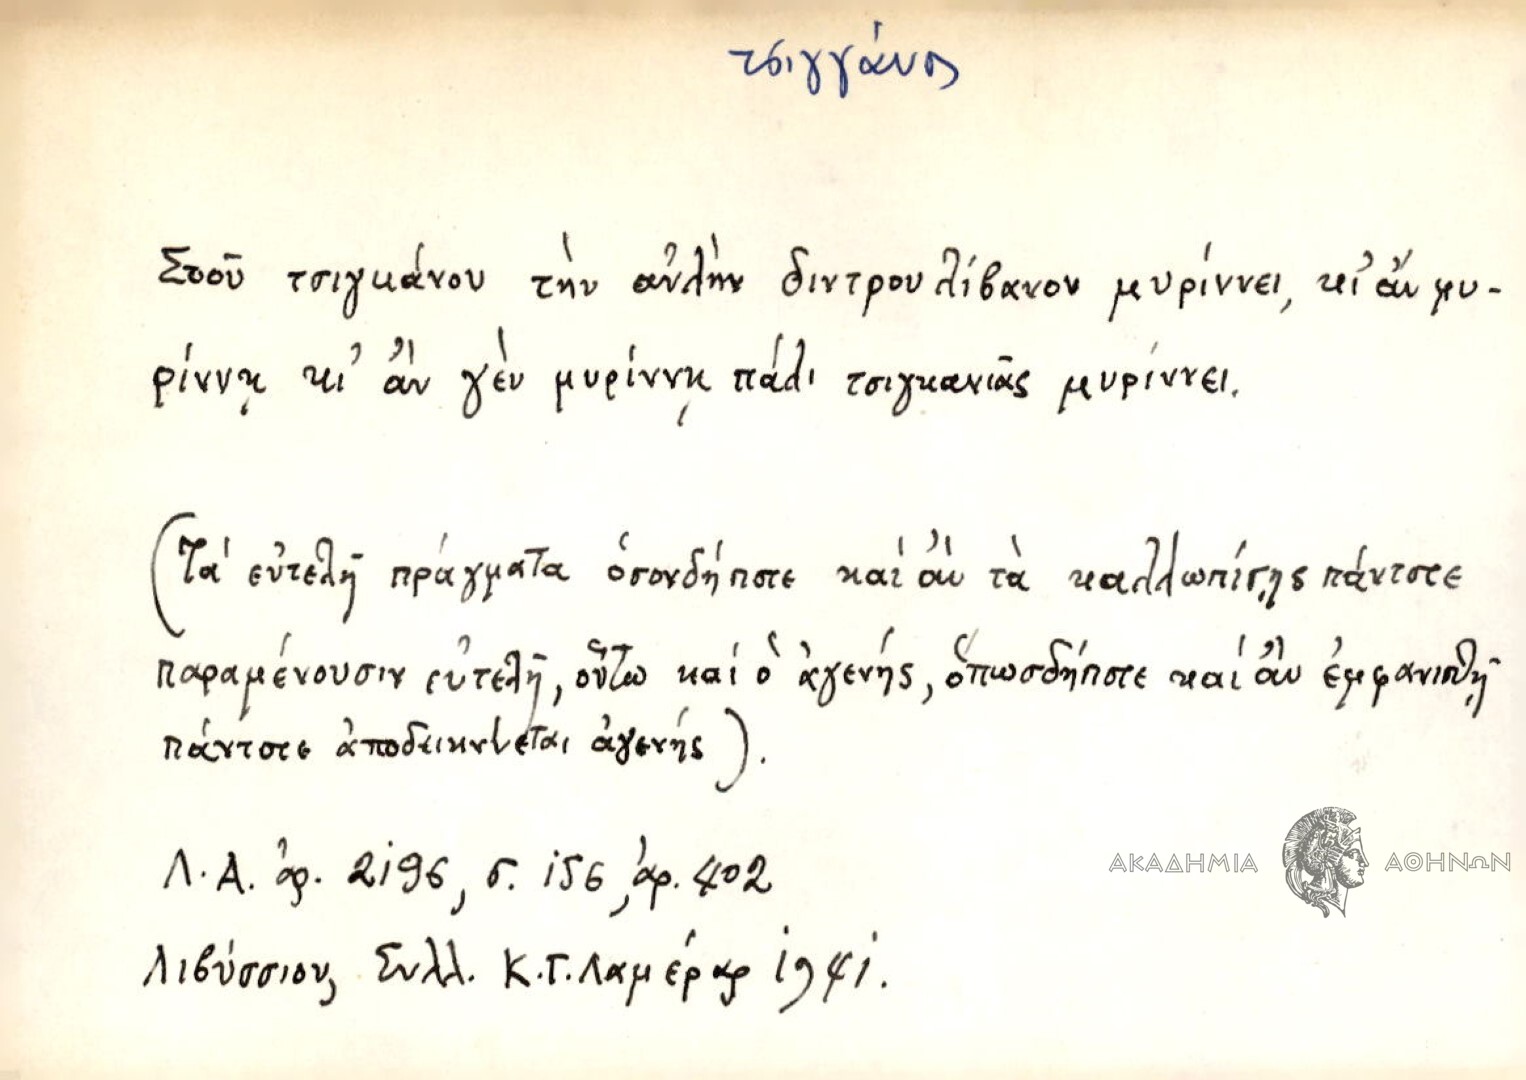 τσιγγάνος
Στοῦ τσιγκάνου τὴν αὐλὴν διντρουλίβανον μυρίννει, κι' ἂν μυ-
ρίννῃ κι' ἂν γὲν μυρίννῃ πάλι τσιγκανιᾶς μυρίννει.
(Τὰ εὐτελῆ πράγματα ὁσονδήποτε καὶ ἂν τὰ καλλωπίσῃς πάντοτε
παραμένουσιν εὐτελῆ, οὕτω καὶ ὁ ἀγενής, ὁπωσδήποτε καὶ ἂν ἐμφανισθῇ
πάντοτε ἀποδεικνύεται ἀγενής).
Λ.Α. ἀρ. 2196, σ. 156, ἀρ. 402
Λιβύσσιον, Συλλ. Κ.Γ. Λαμέρας 1941.
ΑΚΑΔΗΜΙΑ ΑΘΗΝΩΝ